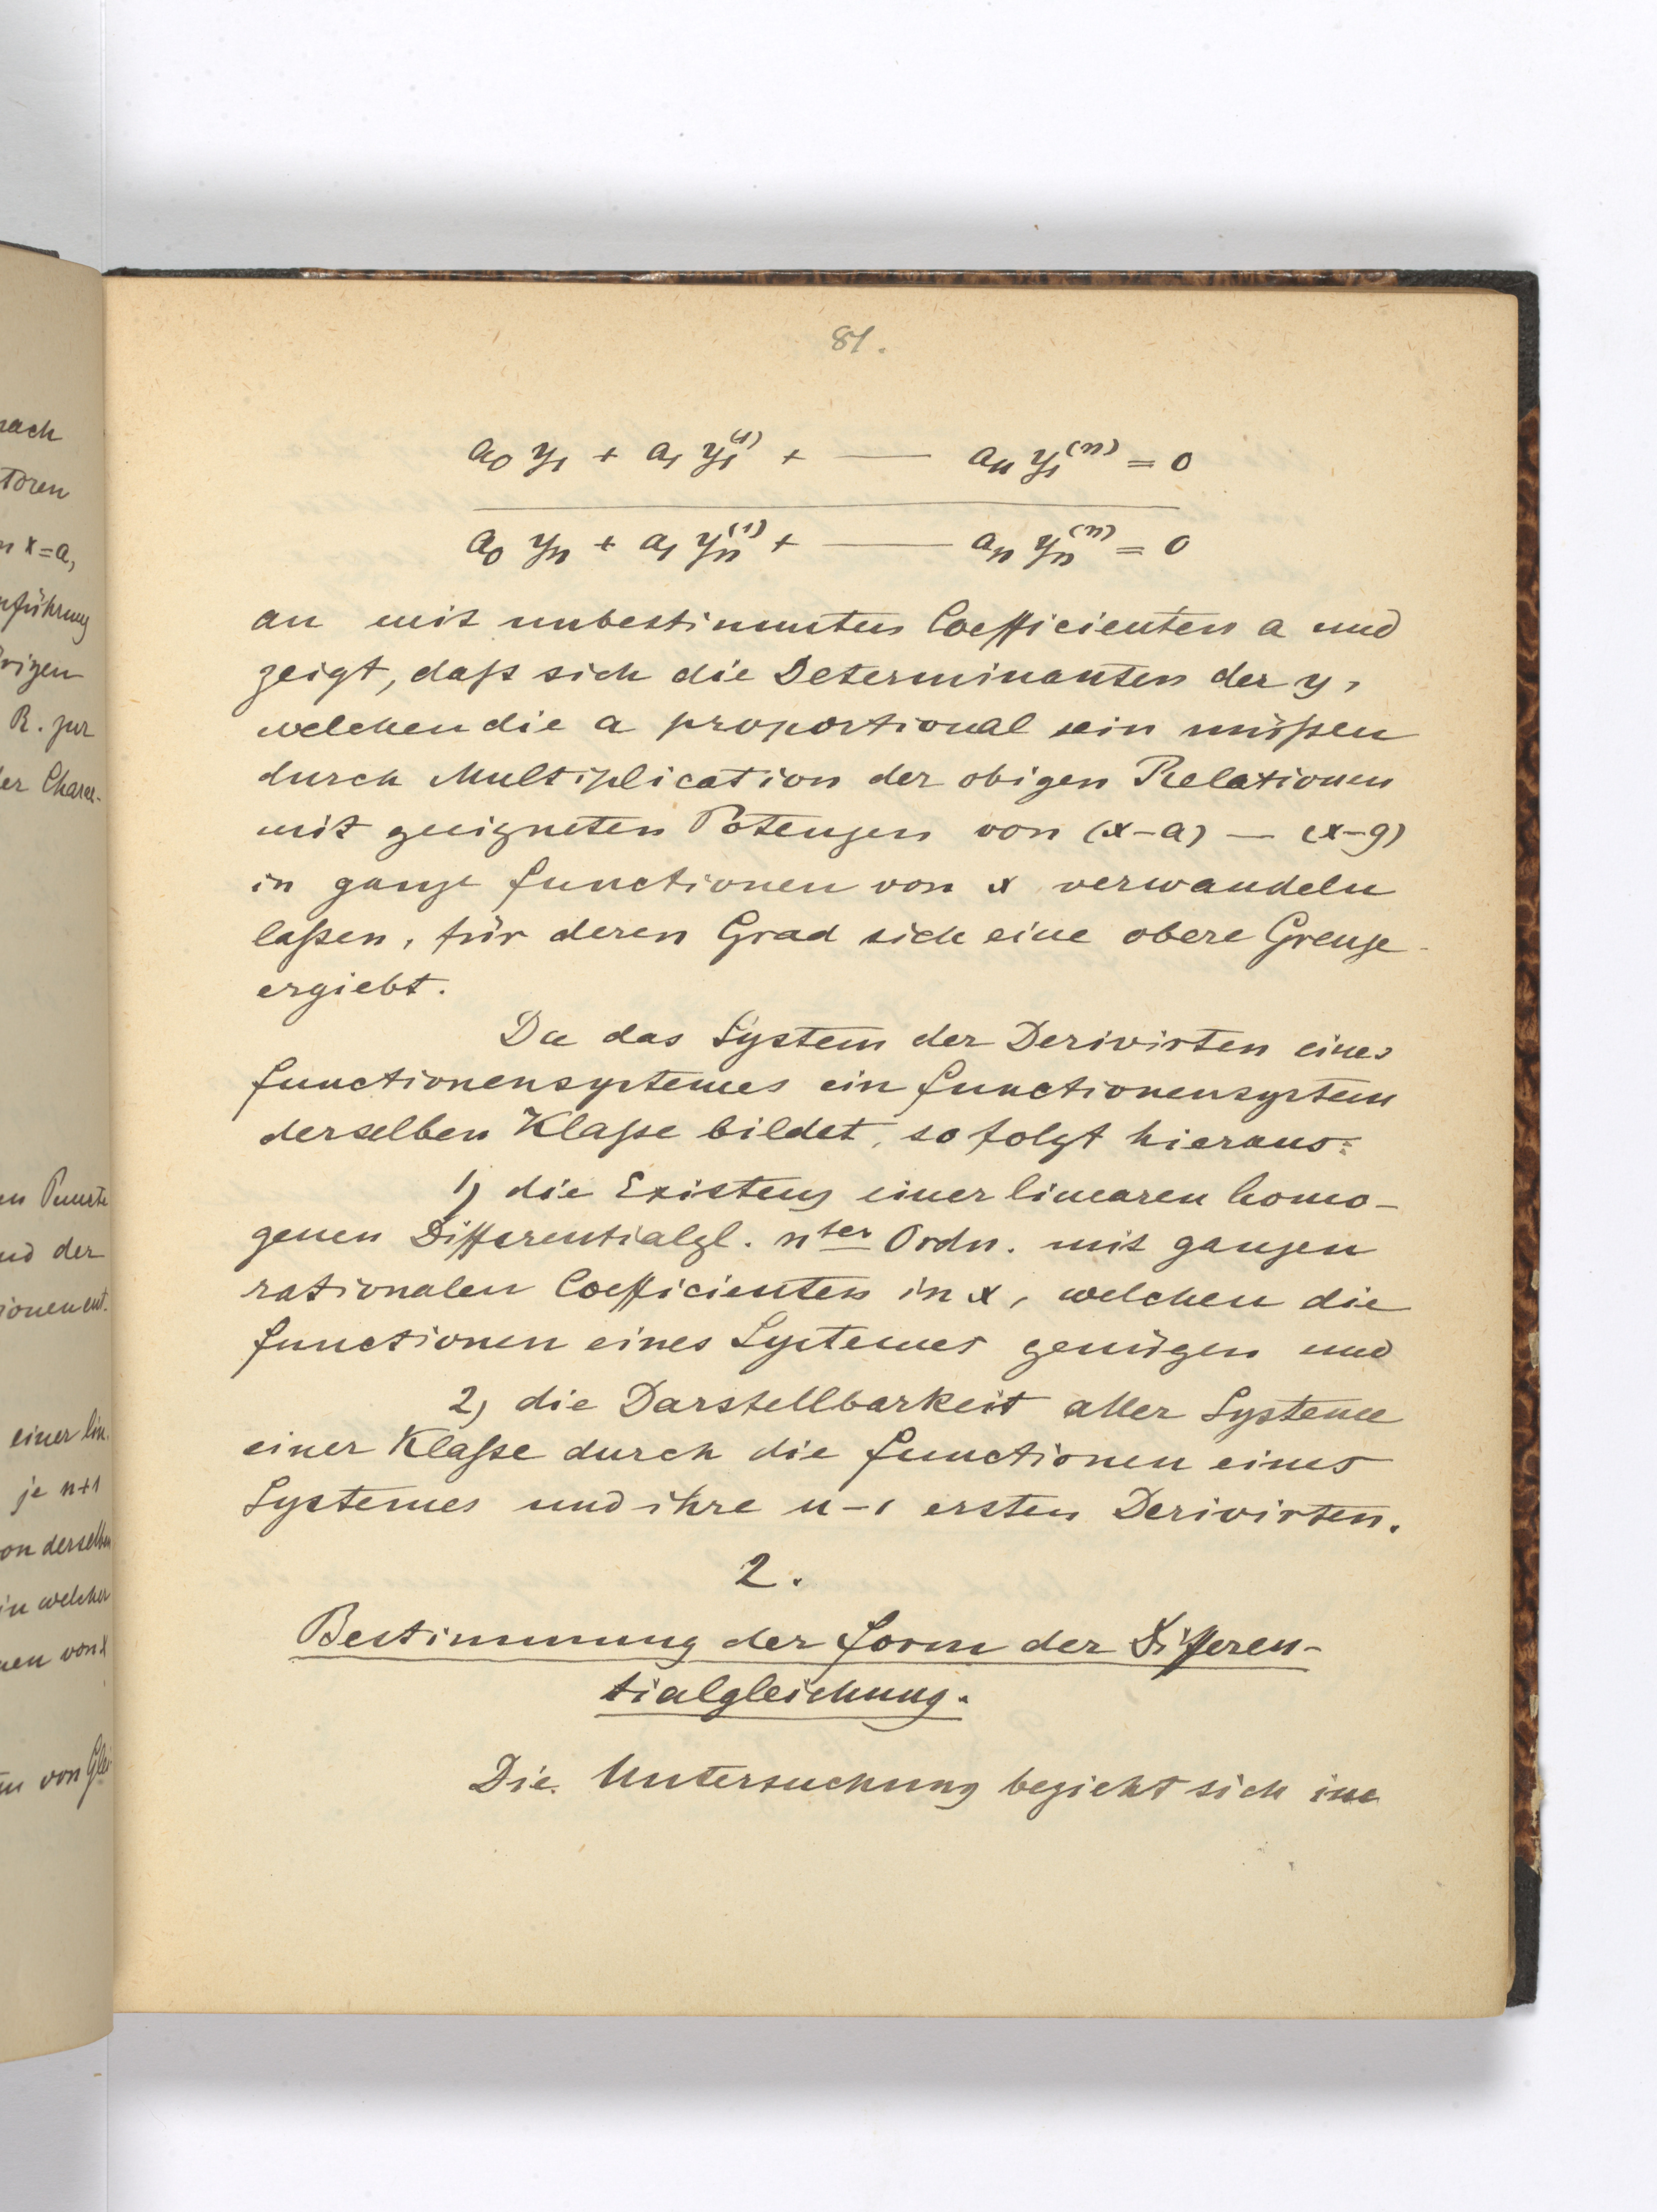 nach
toren
x=a,
führung
rigen
R. zur
er Charac-
Puncte
und der
ionen ent.
einer lin.
je n+1
on derselben
in welcher
nen von x
von Glei
81.
a₀ y₁ + a₁ y₁⁽¹⁾ + — aₙ y₁⁽ⁿ⁾ = 0
a₀ yₙ + a₁ yₙ⁽¹⁾ + — aₙ yₙ⁽ⁿ⁾ = 0
an mit unbestimmten Coefficienten a und
zeigt, daß sich die Determinanten der y,
welchen die a proportional sein müßen
durch Multiplication der obigen Relationen
mit geeigneten Potenzen von (x-a) — (x-g)
in ganze Functionen von x verwandeln
laßen, für deren Grad sich eine obere Grenze
ergiebt.
Da das System der Derivirten eines
Functionensystemes ein Functionensystem
derselben Klaße bildet, so folgt hieraus:
1) die Existenz einer linearen homo-
genen Differentialgl. nter Ordn. mit ganzen
rationalen Coefficienten in x, welchen die
Functionen eines Systemes genügen und
2) die Darstellbarkeit aller Systeme
einer Klaße durch die Functionen eines
Systemes und ihre n-1 ersten Derivirten.
2.
Bestimmung der Form der Differen-
tialgleichung.
Die Untersuchung bezieht sich im